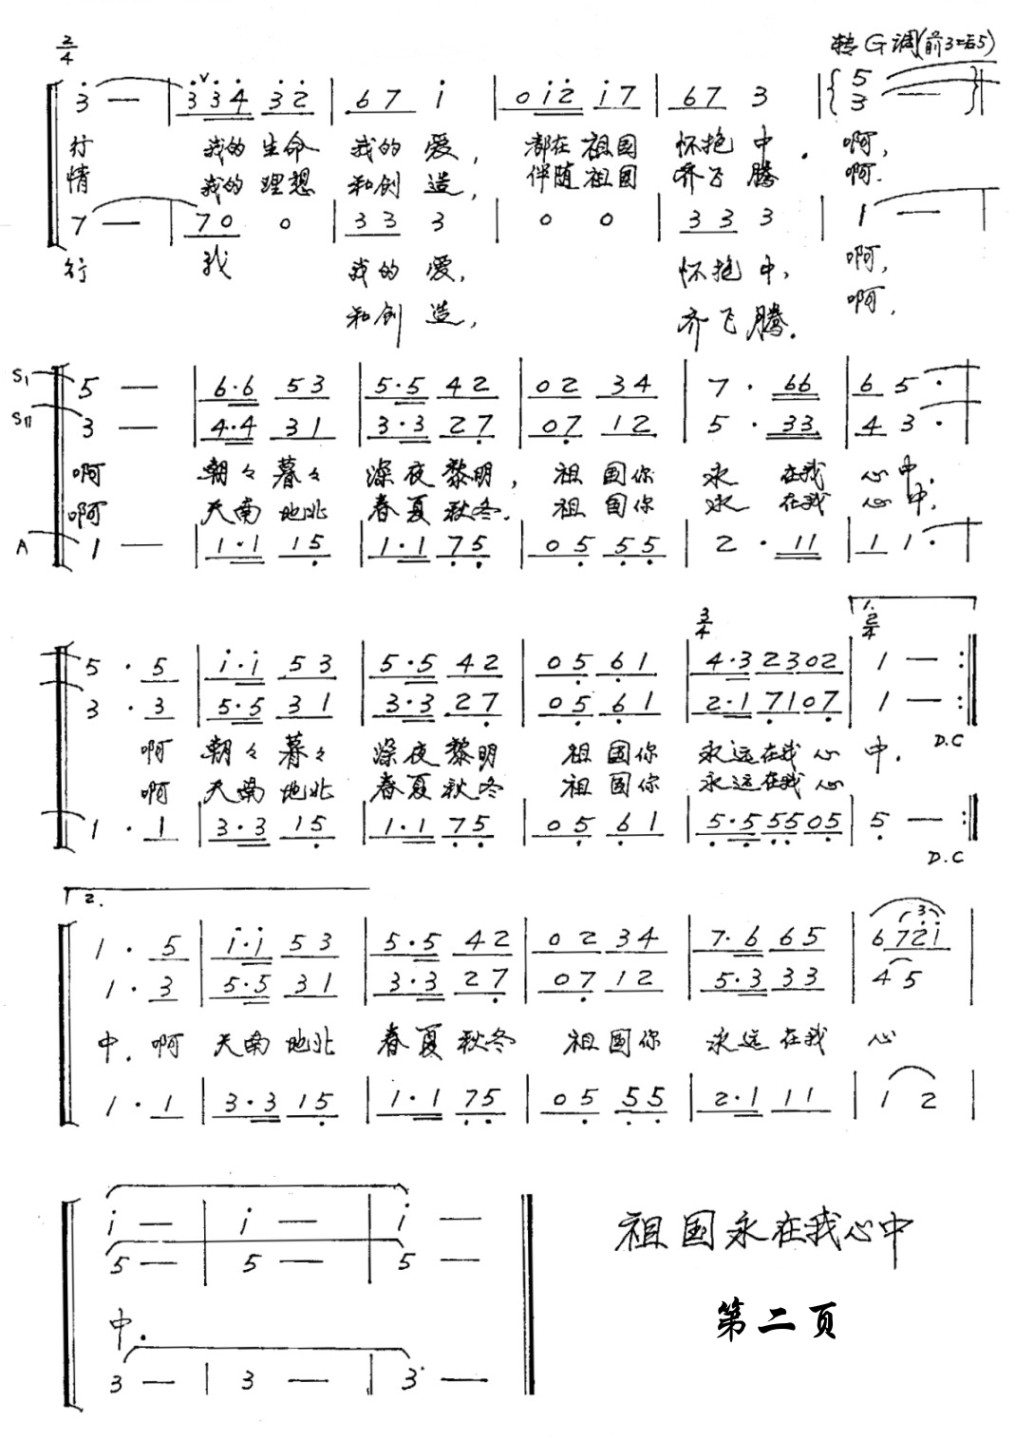 2/4 转G调(前3=后5)
3 — | 3 3 4 3 2 | 6 7 i | 0 i 2 i 7 | 6 7 3 | { 5 3 — }
抒 我的 生命 我的 爱, 都在 祖国 怀抱 中. 啊,
情 我的 理想 和创 造, 伴随 祖国 齐飞 腾 啊.
7 — | 7 0 0 | 3 3 3 | 0 0 | 3 3 3 | 1 — |
行 我 我的 爱, 怀抱 中, 啊,
和创 造, 齐飞腾. 啊,
SI 5 — | 6·6 5 3 | 5·5 4 2 | 0 2 3 4 | 7 · 6 6 | 6 5 · |
SII 3 — | 4·4 3 1 | 3·3 2 7 | 0 7 1 2 | 5 · 3 3 | 4 3 · |
啊 朝々 暮々 深夜 黎明, 祖 国你 永 在我 心中.
啊 天南 地北 春夏 秋冬. 祖 国你 永 在我 心中.
A 1 — | 1·1 1 5 | 1·1 7 5 | 0 5 5 5 | 2 · 1 1 | 1 1 · |
3/4 1. 2/4
5 · 5 | i·i 5 3 | 5·5 4 2 | 0 5 6 1 | 4·3 2 3 0 2 | 1 — :|
3 · 3 | 5·5 3 1 | 3·3 2 7 | 0 5 6 1 | 2·1 7 1 0 7 | 1 — :|
D.C
啊 朝々 暮々 深夜 黎明 祖 国你 永远在我 心 中.
啊 天南 地北 春夏 秋冬 祖 国你 永远在我 心
1 · 1 | 3·3 1 5 | 1·1 7 5 | 0 5 6 1 | 5·5 5 5 0 5 | 5 — :|
D.C
2.
1 · 5 | i·i 5 3 | 5·5 4 2 | 0 2 3 4 | 7·6 6 5 | 6 7 2 i |
3
1 · 3 | 5·5 3 1 | 3·3 2 7 | 0 7 1 2 | 5·3 3 3 | 4 5 |
中. 啊 天南 地北 春夏 秋冬 祖 国你 永远 在我 心
1 · 1 | 3·3 1 5 | 1·1 7 5 | 0 5 5 5 | 2·1 1 1 | 1 2 |
i — | i — | i —
5 — | 5 — | 5 —
中.
3 — | 3 — | 3 —
祖国永在我心中
第二页